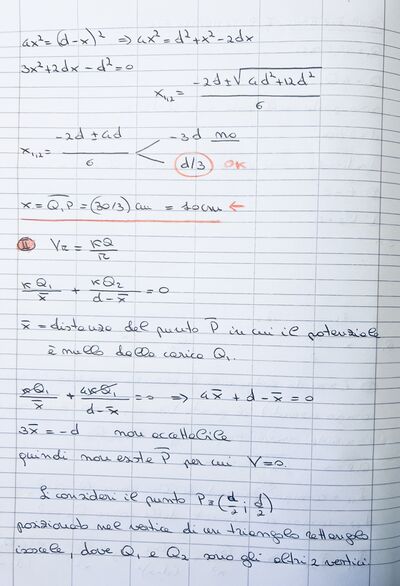 4x² = (d-x)² ⇒ 4x² = d² + x² - 2dx
3x² + 2dx - d² = 0
x₁,₂ = (-2d ± √(4d² + 12d²)) / 6
x₁,₂ = (-2d ± 4d) / 6 < -3d no
d/3 OK
x = Q₁P = (30/3) cm = 10cm ←
II V = KQ/r
KQ₁/x̄ + KQ₂/(d-x̄) = 0
x̄ = distanza del punto P̄ in cui il potenziale
è nullo dalla carica Q₁.
KQ₁/x̄ + 4KQ₁/(d-x̄) = 0 ⇒ 4x̄ + d - x̄ = 0
3x̄ = -d non accettabile
quindi non esiste P̄ per cui V=0.
Si consideri il punto P≡(d/2 ; d/2)
posizionato nel vertice di un triangolo rettangolo
isoscele, dove Q₁ e Q₂ sono gli altri 2 vertici.